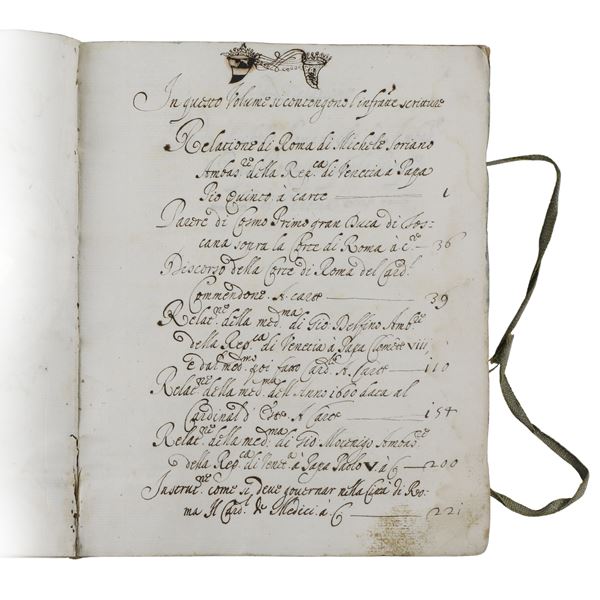 In questo Volume si contengono l'infra.tte scritture
Relatione di Roma di Michele Soriano
Ambas.re della Rep.ca di Venetia à Papa
Pio Quinto à carte 1
Parere di Cosmo Primo gran Duca di Tos:
cana sopra la Corte di Roma à c.te 36
Discorso della Corte di Roma del Card.l
Commendone. A. carte 39
Relat.ne della med.ma di Gio: Delfino Amb.re
della Rep.ca di Venetia à Papa Clemẽte VIII
e dal med.mo poi fatto Card.le A. Carte 110
Relat.ne della med.ma dell'Anno 1600 data al
Cardinal d'Este A Carte 154
Relat.ne della med.ma di Gio: Mocenigo Ambas.re
della Rep.ca di Venet.a à Papa Paolo V à C 200
Instrut.ne come si deve governar nella Città di Ro:
ma Il Card.l de Medici à C 221